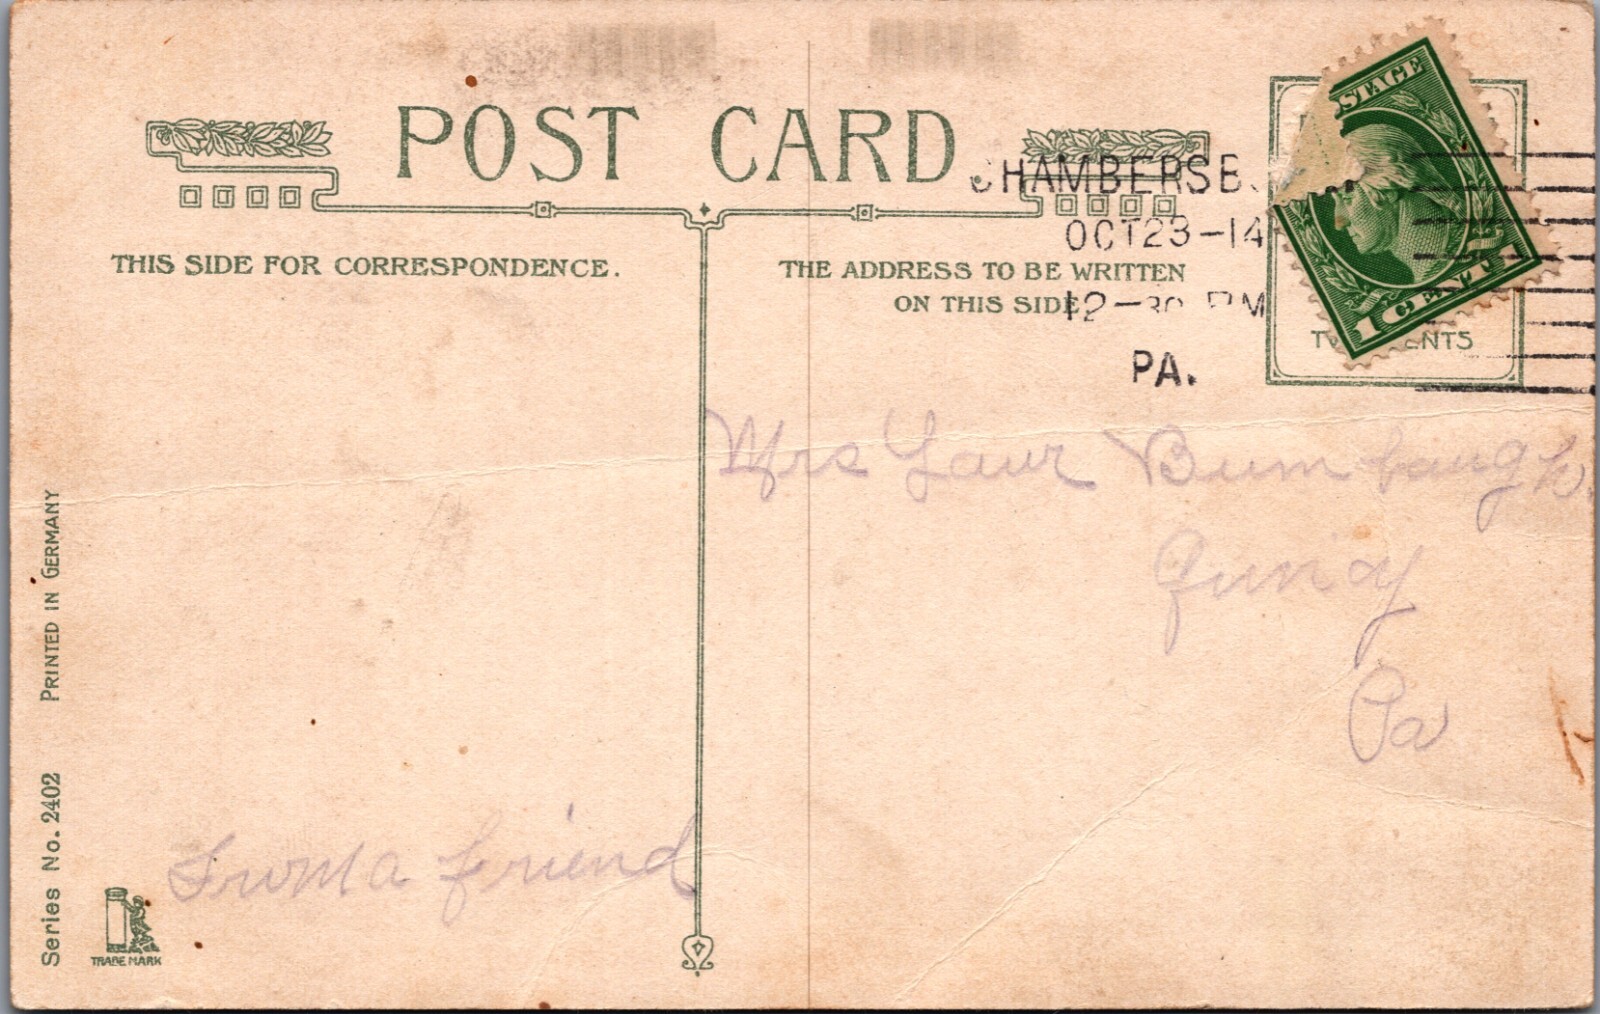 POST CARD
THIS SIDE FOR CORRESPONDENCE.
THE ADDRESS TO BE WRITTEN
ON THIS SIDE
CHAMBERSB
OCT 23-14
12-30 PM
PA.
STAGE
1 CENT
NTS
Mrs Laur Bumbaugh
Quincy
Pa
From a friend
PRINTED IN GERMANY
Series No. 2402
TRADE MARK